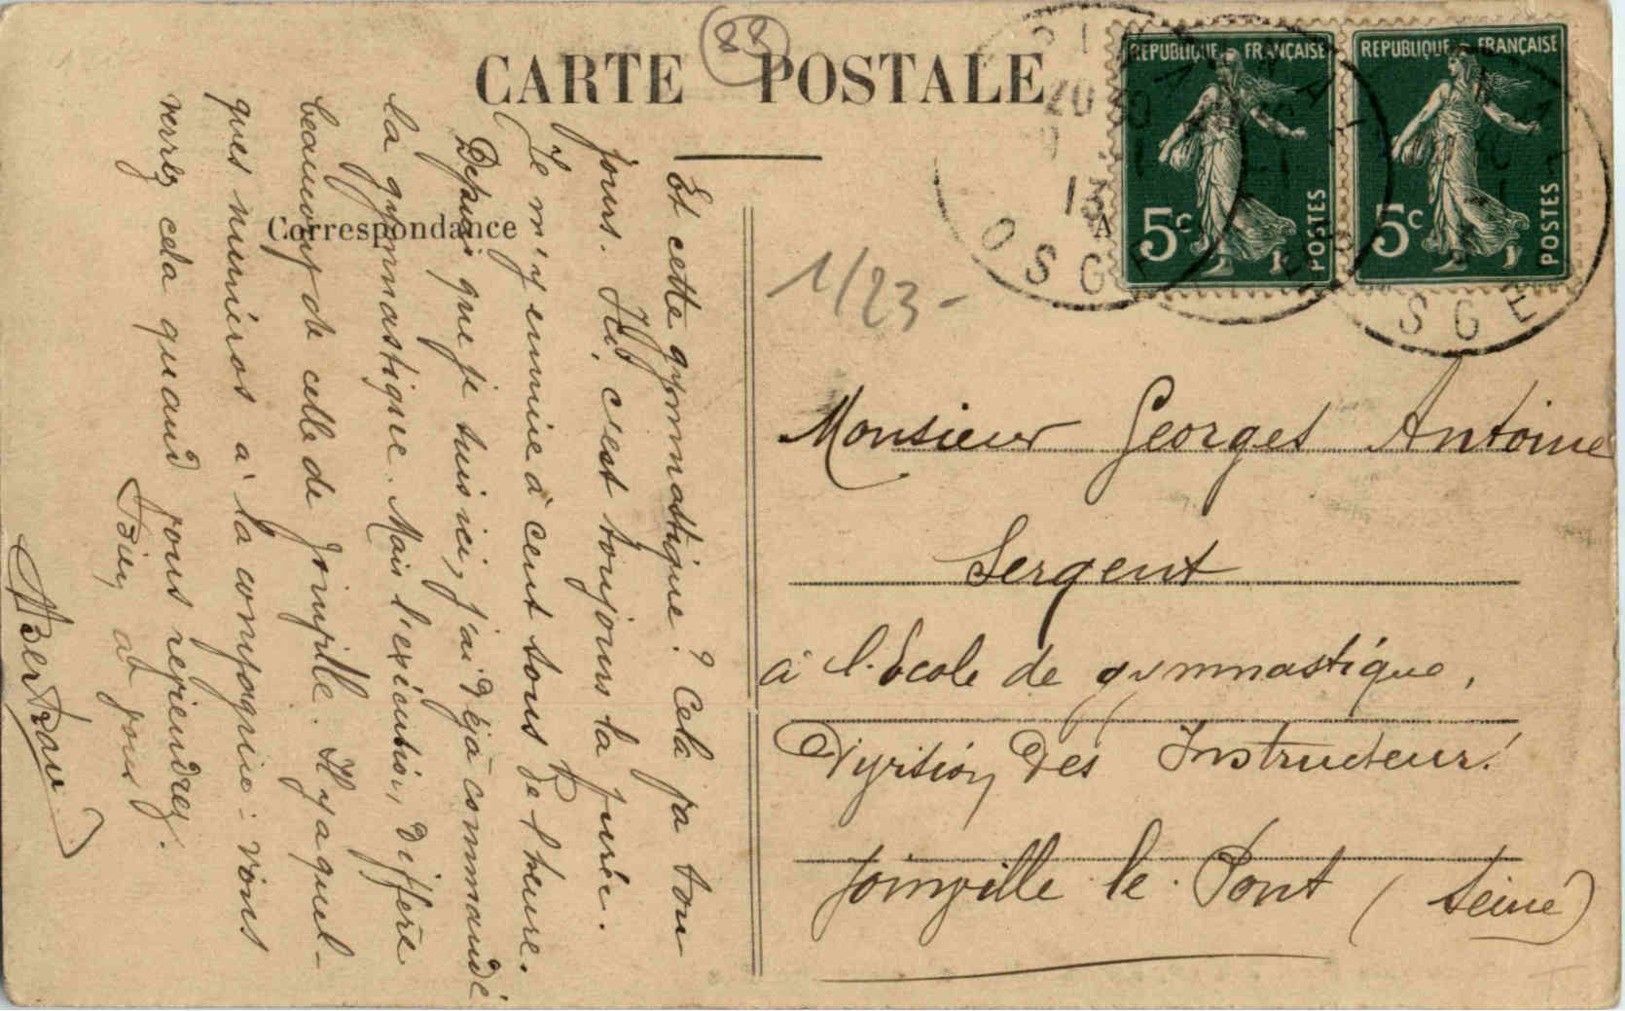 88
CARTE POSTALE
Correspondance
REPUBLIQUE FRANÇAISE
5c
POSTES
REPUBLIQUE FRANÇAISE
5c
POSTES
OSGE
SGE
1/23-
Et cette gymnastique? Cela va tou
jours. Ici, c'est toujours la purée.
Je m'y ennuie à cent sous de l'heure.
Depuis que je suis ici, j'ai déjà commandé
la gymnastique. Mais l'exécution, diffère
beaucoup de celle de Joinville. Il y a quel-
ques numéros à la compagnie: vous
verrez cela quand vous reviendrez.
Bien à vous
Monsieur Georges Antoine
Sergent
à l'Ecole de gymnastique,
Division des Instructeurs
Joinville le Pont (Seine)